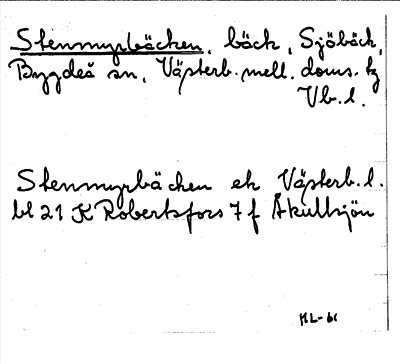 Stenmyrbäcken, bäck, Sjöbäck,
Bygdeå sn, Västerb. mell. doms. tg
Vb. l.
Stenmyrbäcken ek Västerb. l.
bl 21 K Robertsfors 7 f Åkullsjön
HL-61